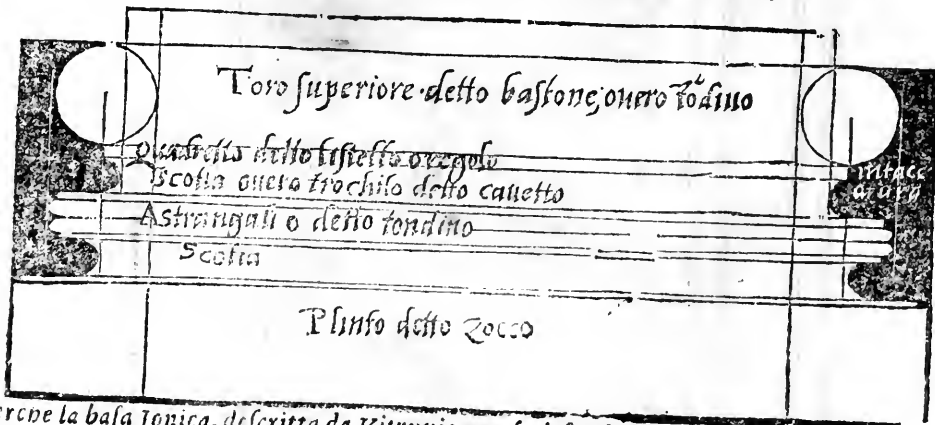 Toro superiore detto bastone, ouero tōdino
Quadretto detto listello o regolo
Scotia ouero trochilo detto cauetto
intacc
atura
Astrangali o detto tondino
Scotia
Plinto detto Zocco
la basa Ionica, descritta da